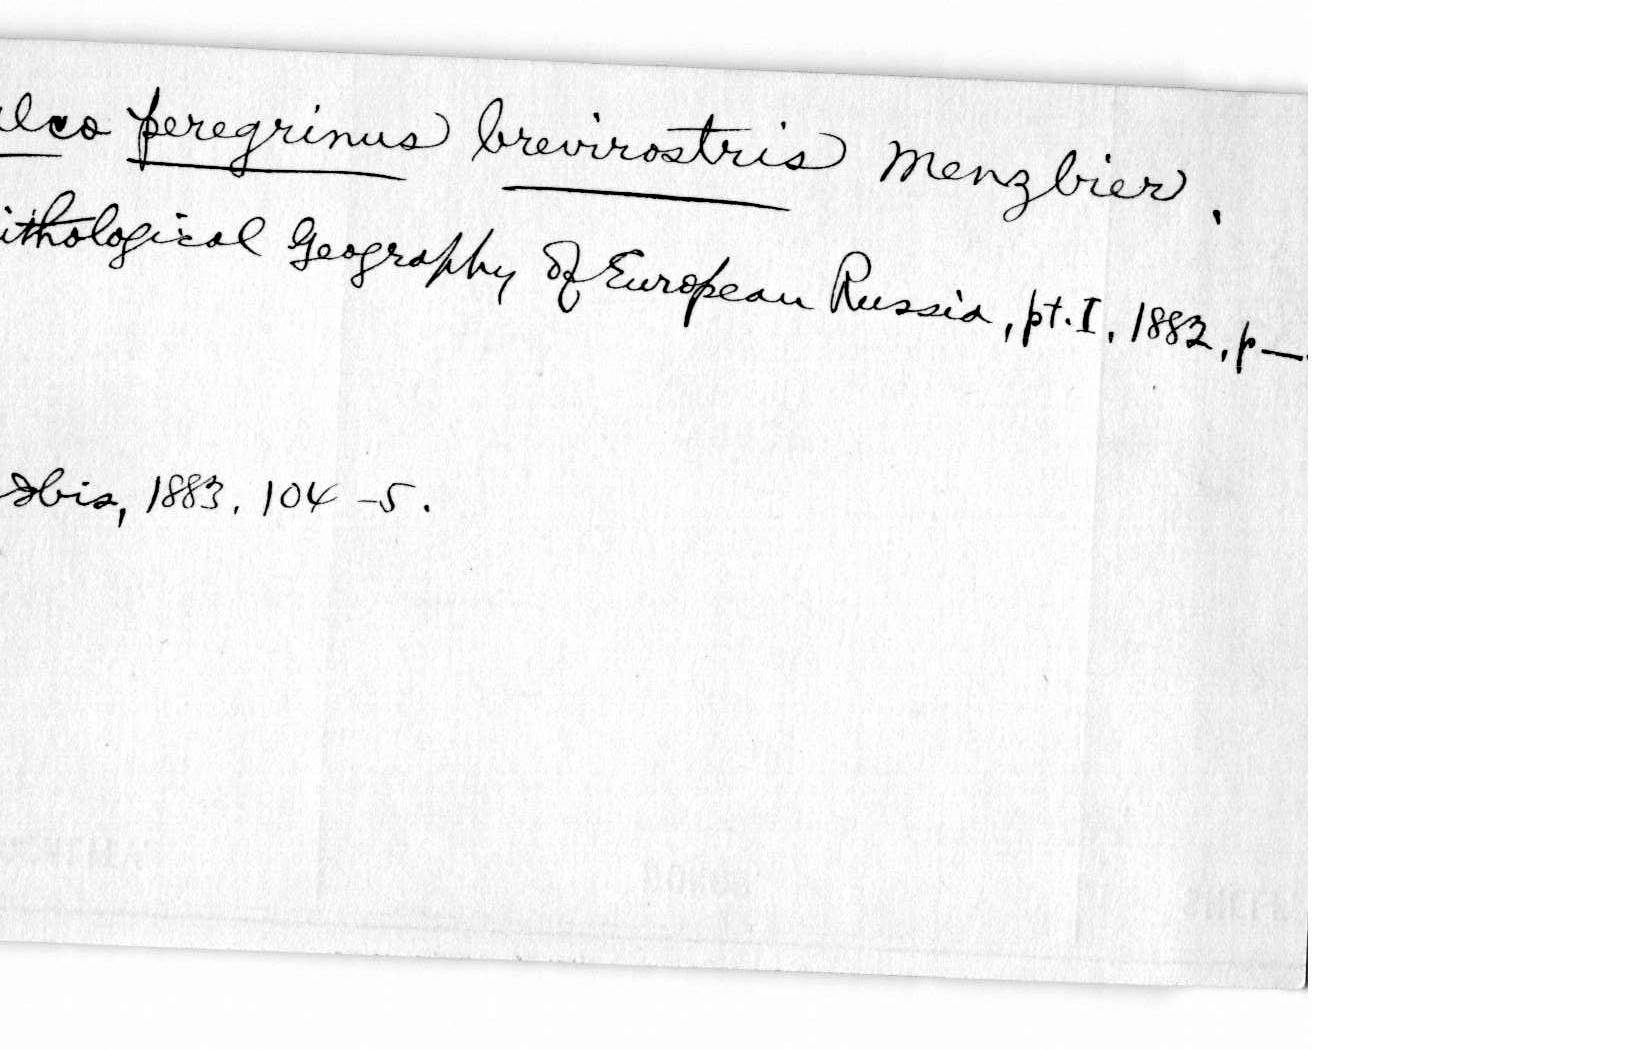 alco peregrinus brevirostris Menzbier.
ithological Geography of European Russia, pt. I, 1882, p—.
Ibis, 1883, 104-5.
DONOR